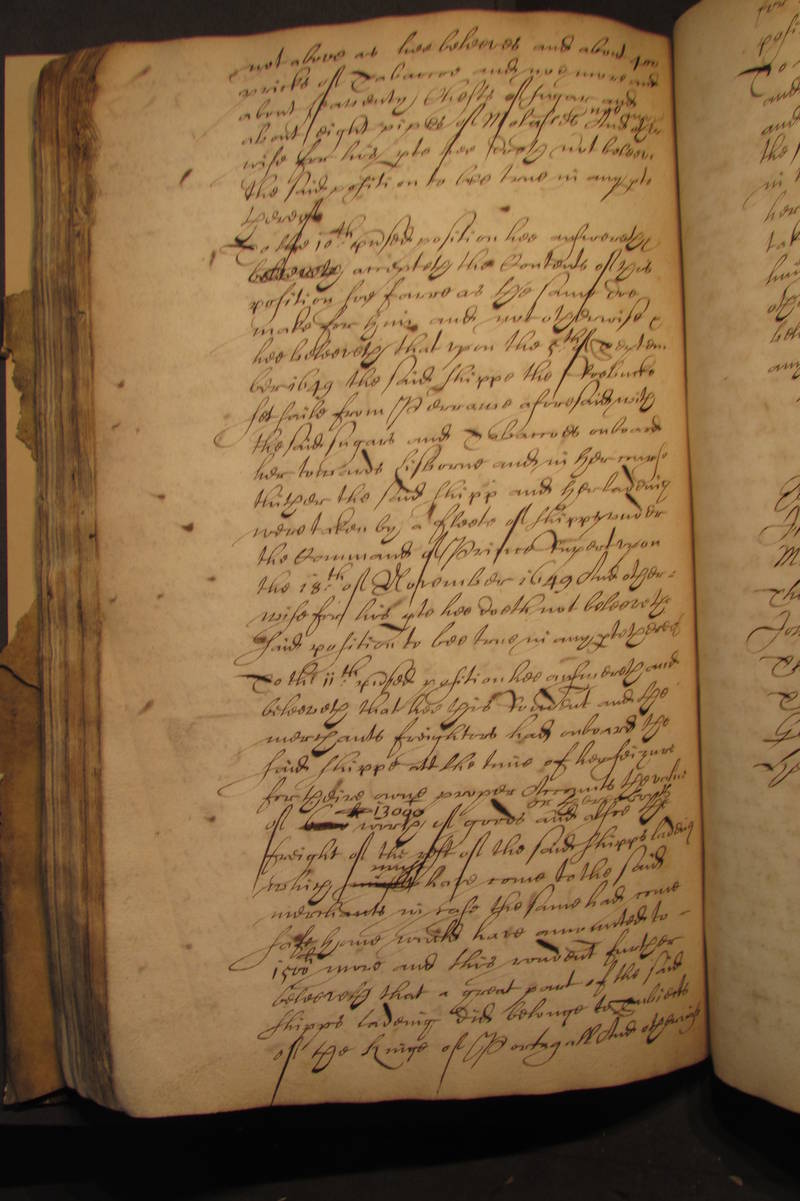 not above as hee beleeves and about ten
pricks of Tabaccoe and noe more and
about seaventy Chests of sugar and
about eight pipes of Molasses And other
wise for his pte hee doeth not beleeve
the said position to bee true in any pte
thereof
To the 10th pused position hee answereth
accepteth the Contents of this
position soe farre as the same doe
make for him and not otherwise
hee beleeveth that upon the 5th of Septem
ber 1649 the said shippe the Roebucke
set saile from aforesaid with
the said sugars and Tobaccoes onboard
her towards Lisborne and in her course
thither the said shipp and her ladeing
were taken by a fleete of shipps under
the Command of Prince Rupert upon
the 18th of November 1649 And other-
wise for his pte hee doeth not beleeve the
said position to bee true in any pte thereof
To the 11th pused position hee answereth and
beleeveth that hee this rondent and the
merchants freightors had onboard the
said shippe att the time of her seizure
for theire owne proper Accounts the value
of 1300 worth of goods or thereabouts and alsoe the
freight of the rest of the said shipps ladeing
which must have come to the said
merchants in case the same had come
safe home would have amounted to -
1500 more and this rondent further
beleeveth that a great part of the said
shipps ladeing did belonge to Subiects
of the Kinge of Portugall And otherwise